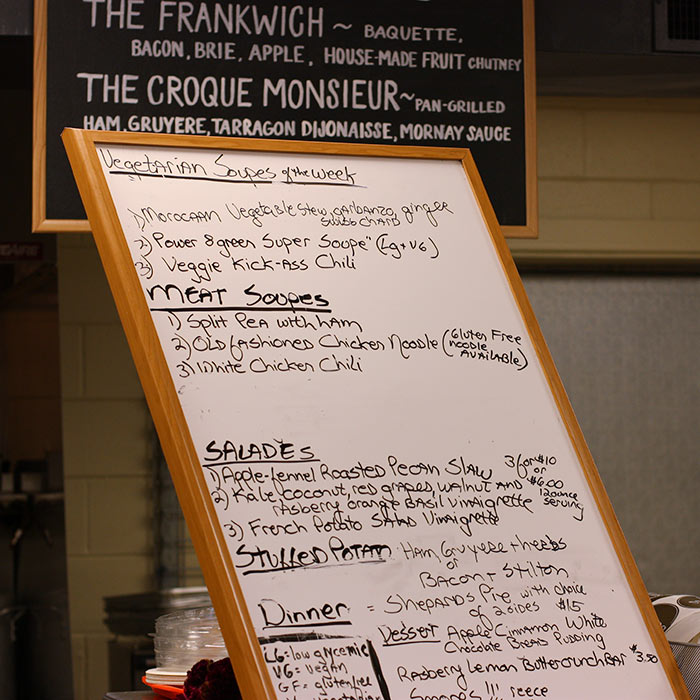 THE FRANKWICH ~ BAQUETTE,
BACON, BRIE, APPLE, HOUSE-MADE FRUIT CHUTNEY
THE CROQUE MONSIEUR~PAN-GRILLED
HAM, GRUYERE, TARRAGON DIJONAISSE, MORNAY SAUCE
Vegetarian Soupes of the Week
1) Morocaan Vegetable Stew, garbanzo, ginger
swiss chard
2) Power 8 green Super Soupe" (Lg + VG)
3) Veggie Kick-Ass Chili
MEAT Soupes
1) Split Pea with ham
2) OLD fashioned Chicken Noodle (Gluten Free
noodle
AVAILABLE)
3) White Chicken Chili
SALADES
1) Apple-fennel Roasted Pecan Slaw
2) Kale, coconut, red grapes, walnut AND
rasberry orange BASIL Vinaigrette
3) French Potato Salad Vinaigrette
3 for $10
or
$6.00
12 ounce
serving
Stuffed Potato Ham, Gruyere + herbs
or
Bacon + Stilton
Dinner = Shepards Pie with choice
of 2 sides $15
Dessert Apple Cinnamon White
Chocolate Bread Pudding
Rasberry Lemon Buttercrunch BAR $3.50
Smores !!! reece
LG = low glycemic
VG = vegan
GF = gluten free
vegetarian